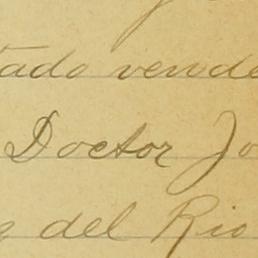 tado vende
Doctor Jo
del Rio